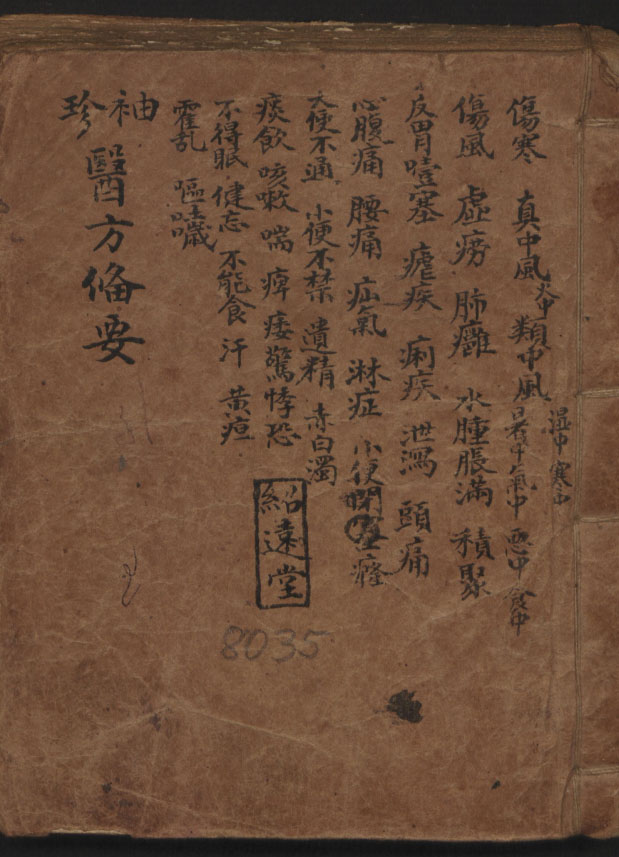 湿中 寒中
傷寒 真中風 火中 類中風 暑中 氣中 惡中 食中
傷風 虛癆 肺癰 水腫脹滿 積聚
反胃噎塞 瘧疾 痢疾 泄瀉 頭痛
心腹痛 腰痛 疝氣 淋症 小便閉 癃
大便不通 小便不禁 遺精 赤白濁
痰飲 咳嗽 喘 痺 痿 驚悸恐
不得眠 健忘 不能食 汗 黄疸
霍乱 嘔噦
紹遠堂
袖珍
醫方俻要
8035